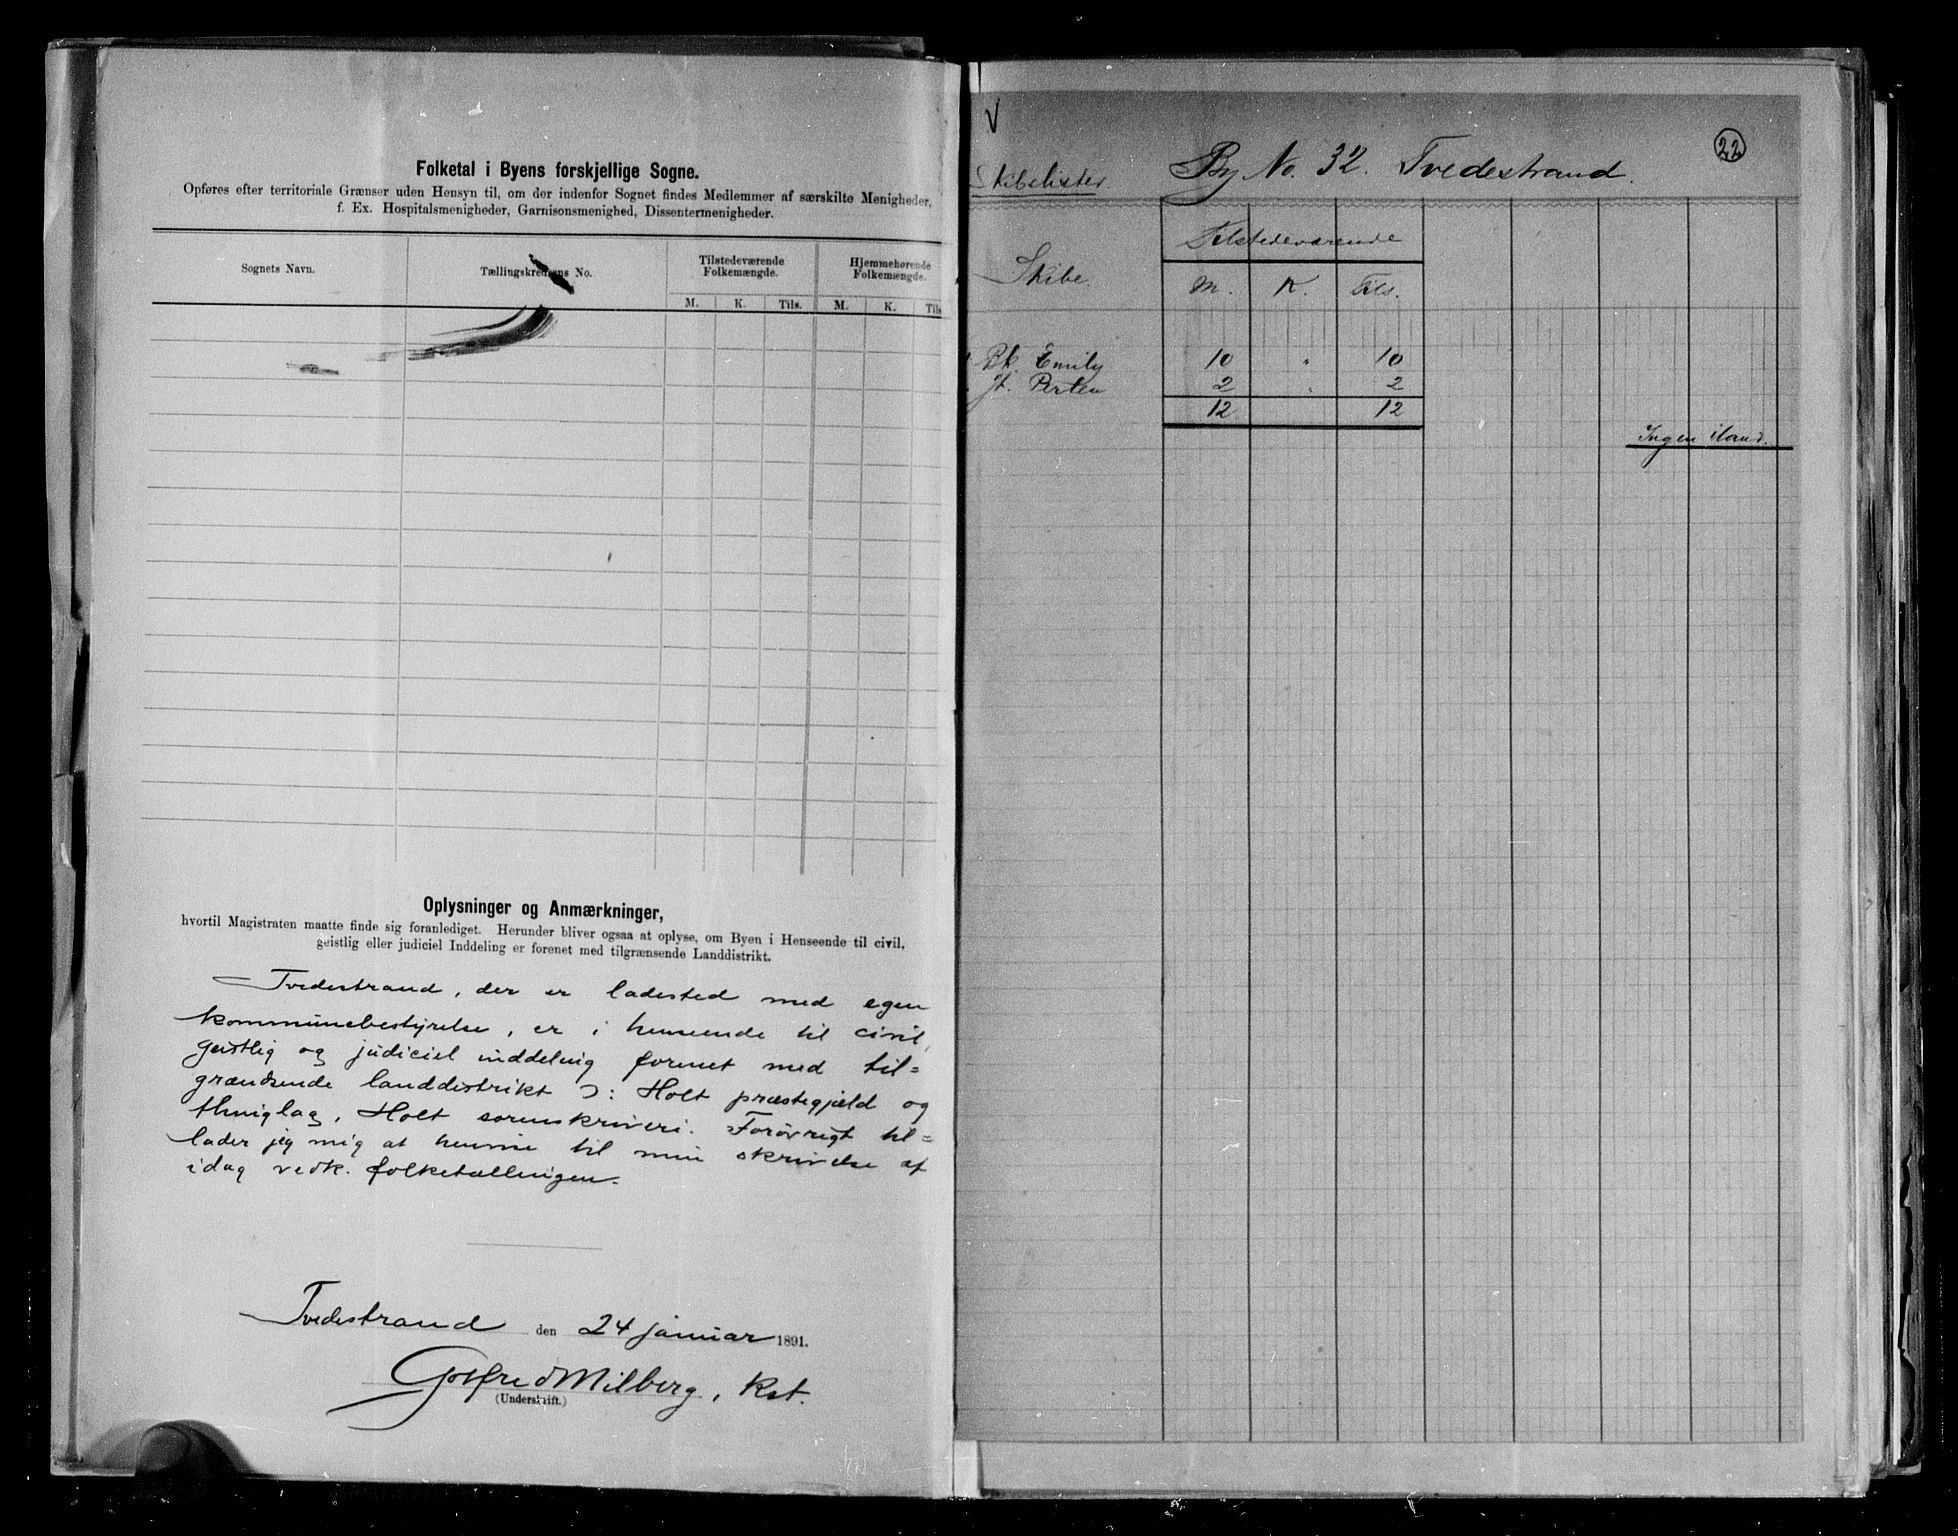 Folketal i Byens forskjellige Sogne.
Opføres efter territoriale Grænser uden Hensyn til, om der indenfor Sognet findes Medlemmer af særskilte Menigheder,
f. Ex. Hospitalsmenigheder, Garnisonsmenighed, Dissentermenigheder.
Sognets Navn. Tællingskredsens No. Tilstedeværende Folkemængde. Hjemmehørende Folkemængde.
M. K. Tils. M. K. Tils
Oplysninger og Anmærkninger,
hvortil Magistraten maatte finde sig foranlediget. Herunder bliver ogsaa at oplyse, om Byen i Henseende til civil,
geistlig eller judiciel Inddeling er forenet med tilgrænsende Landdistrikt.
Tvedestrand, der er ladested med egen
kommunebestyrelse, er i henseende til civil,
geistlig og judiciel inddeling forenet med til=
grændsende landdistrikt ɔ: Holt præstegjæld og
thinglag, Holt sorenskriveri. Forøvrigt til=
lader jeg mig at henvise til min skrivelse af
idag vedk. folketællingen.
Tvedestrand den 24 januar 1891.
Gotfred Milberg, Kst.
(Underskrift.)
V
22
Skibslister By No. 32. Tvedestrand.
Tilstedeværende
Skibe. M. K. Tils.
Bk. Emily 10 " 10
Jt. 2 " 2
12 12
Ingen iland.